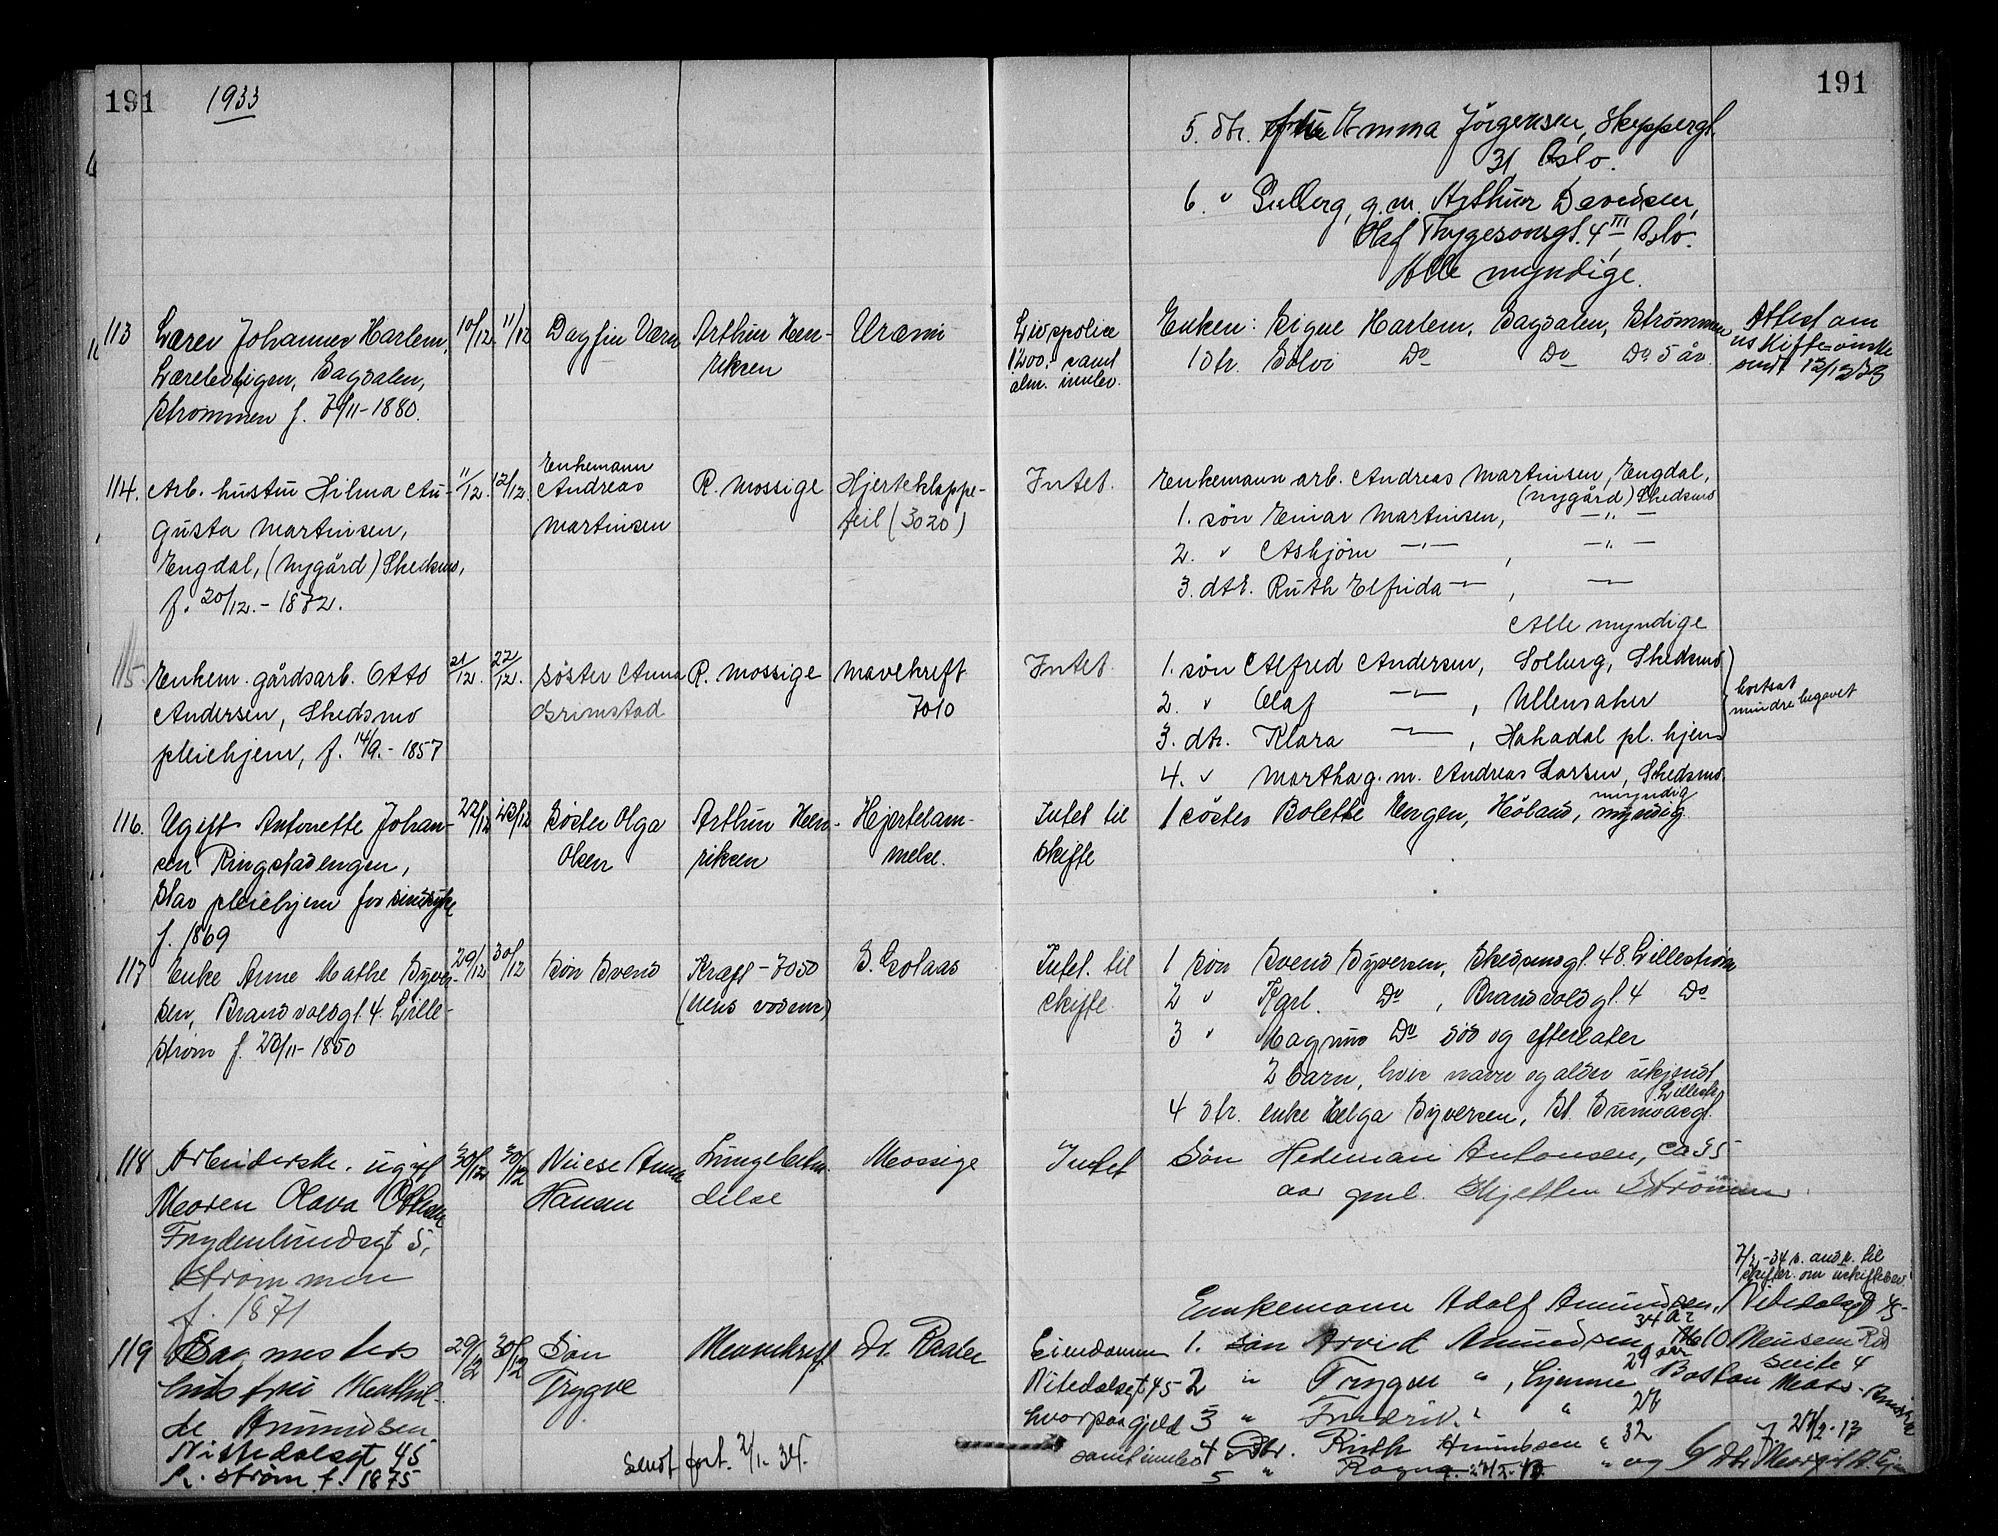 191
1933
191
5. dtr. fru Emma Jörgensen, Skippergt.
31 Oslo.
6. " Solberg, g.m. Arthur Davidsen,
Olaf Thygesonsgt. 4 III, Oslo.
Alle myndige.
113
Lærer Johannes Harlem,
Lærerboligen, Sagdalen,
Strømmen f. 7/11-1880.
10/12
11/12
Dagfin Værn
Arthur Hen-
riksen
Uræmi
Livspolice
1200,- samt
alm. innbo.
Enken: Signe Harlem, Sagdalen, Strømmen
1 dtr. Solvi Do Do Do 5 år
Attest om
uskifteønske
sendt 12/12 33
114.
Arb. hustru Hilma Au-
gusta Martinsen,
Engdal, (Nygård) Skedsmo,
f. 20/12.-1872.
11/12.
12/12.
Enkemann
Andreas
Martinsen
R. Mossige
Hjerteklappe-
feil (3020)
Intet.
Enkemann arb. Andreas Martinsen, Engdal,
(Nygård) Skedsmo
1. søn Einar Martinsen, —"—
2. " Asbjörn —"— , —"—
3. dtr. Ruth Elfrida —"— , —"—
Alle myndige
115.
Enkem. gårdsarb. Otto
Andersen, Skedsmo
pleiehjem, f. 14/9.-1857
21/12.
22/12.
Søster Anna
Grimstad
R. Mossige
Mavekreft
7010
Intet.
1. søn Alfred Andersen, Solberg, Skedsmo
2. " Olaf —"— , Ullensaker
3. dtr. Klara —"— , Hakadal pl. hjem
4. " Martha g. m. Andreas Larsen, Skedsmo.
myndig
bortsat
mindre begavet
116.
Ugift Antonette Johan-
sen Ringstadengen,
Stav pleiehjem for sindsyke
f. 1869
22/12
23/12
Søster Olga
Olsen
Arthur Hen-
riksen
Hjertelam-
melse.
Intet til
skifte
1 søster Bolette Engen, Höland, myndig
117
Enke Anne Mathe Syver-
sen, Brandvoldsgt. 4. Lille-
strøm f. 23/11-1850
29/12
30/12
Søn Svend
Kræft - 7050
Intet. til
skifte.
1 søn Svend Syversen, Skedsmogt. 48. Lillestrøm
2 " Karl. Do , Brandvoldsgt. 4 Do
3 " Magnus Do død og efterlater
2 barn, hvis navn og alder ukjendt
Lillestr.
4 dtr. enke Helga Syversen,
118
Arbeiderske. ugift
Maren Olava Olsen
Frydenlundsgt 5,
Strømmen
f. 1871
30/12
30/12
Niese Anna
Hansen
Lungebeten-
delse
Mossige
Intet
Søn Hedeman Antonsen, ca 35
aar gml. Skjetten Strømmen
119
Bagmesters
hustru Mathil-
de Amundsen
Nittedalsgt 45
L. strøm f. 1875
29/12
30/12
Søn
Trygve
Mavekreft
Dr. Raaler
sendt fort. 2/1. 34.
Eiendommen
Nitedalsgt 45
hvorpaa gjeld
samt innbo
Enkemann Adolf Amundsen, Nitedalsgt 45
34 år
1. Søn Arvid Amundsen
29 aar
2 " Trygve " , hjemme Boston Mass.
3 " Fredrik " " 26
4 Dtr. Ruth Amundsen " 32
5 " Ragna " og 6 Dtr Margit
f 27/2-13